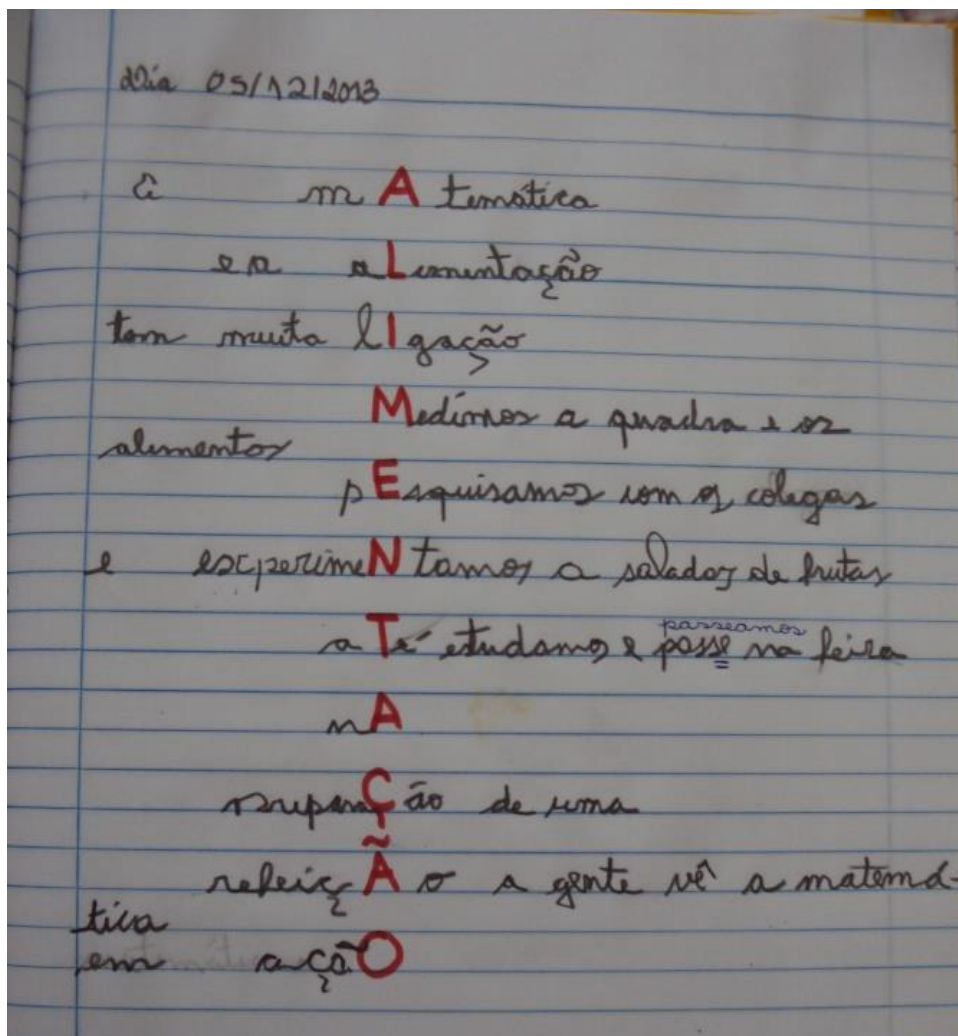 Dia 05/12/2013
a mAtemática
e a aLimentação
tem muita lIgação
Medimos a quadra e os
alimentos
pEsquisamos com os colegas
e escperimeNtamos a saladas de frutas
passeamos
aTé estudamos e passe na feira
nA
preparaÇão de uma
refeiçÃo a gente vê a matemá-
tica
em açãO